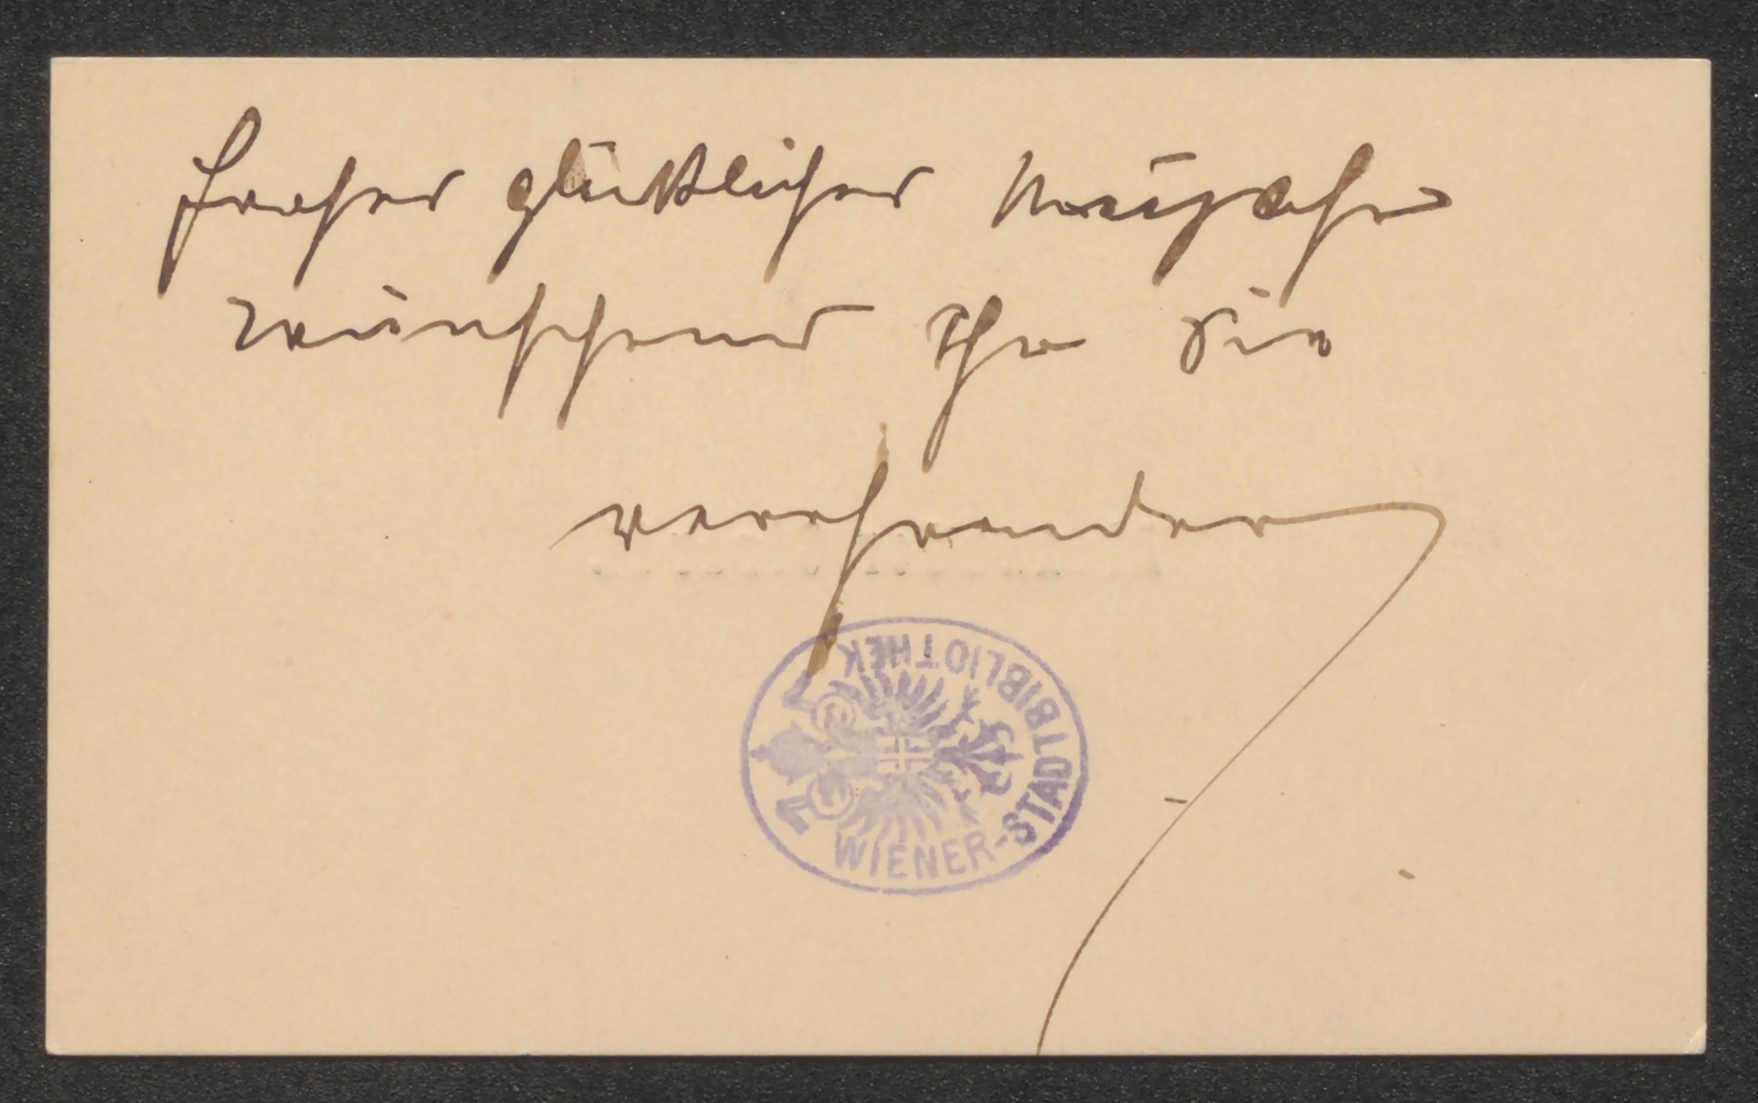 frohes glückliches Neujahr
wünschend Ihr Sie
verehrender
WIENER-STADTBIBLIOTHEK